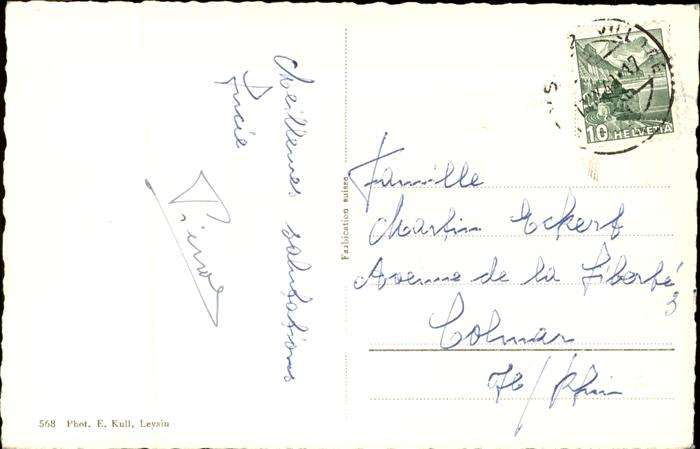 Meilleures salutations
Lucie
Pierrot
Famille
Martin Eckert
Avenue de la Liberté
3
Colmar
Ht/Rhin
Fabrication suisse
568 Phot. E. Kull, Leysin
10 HELVETIA